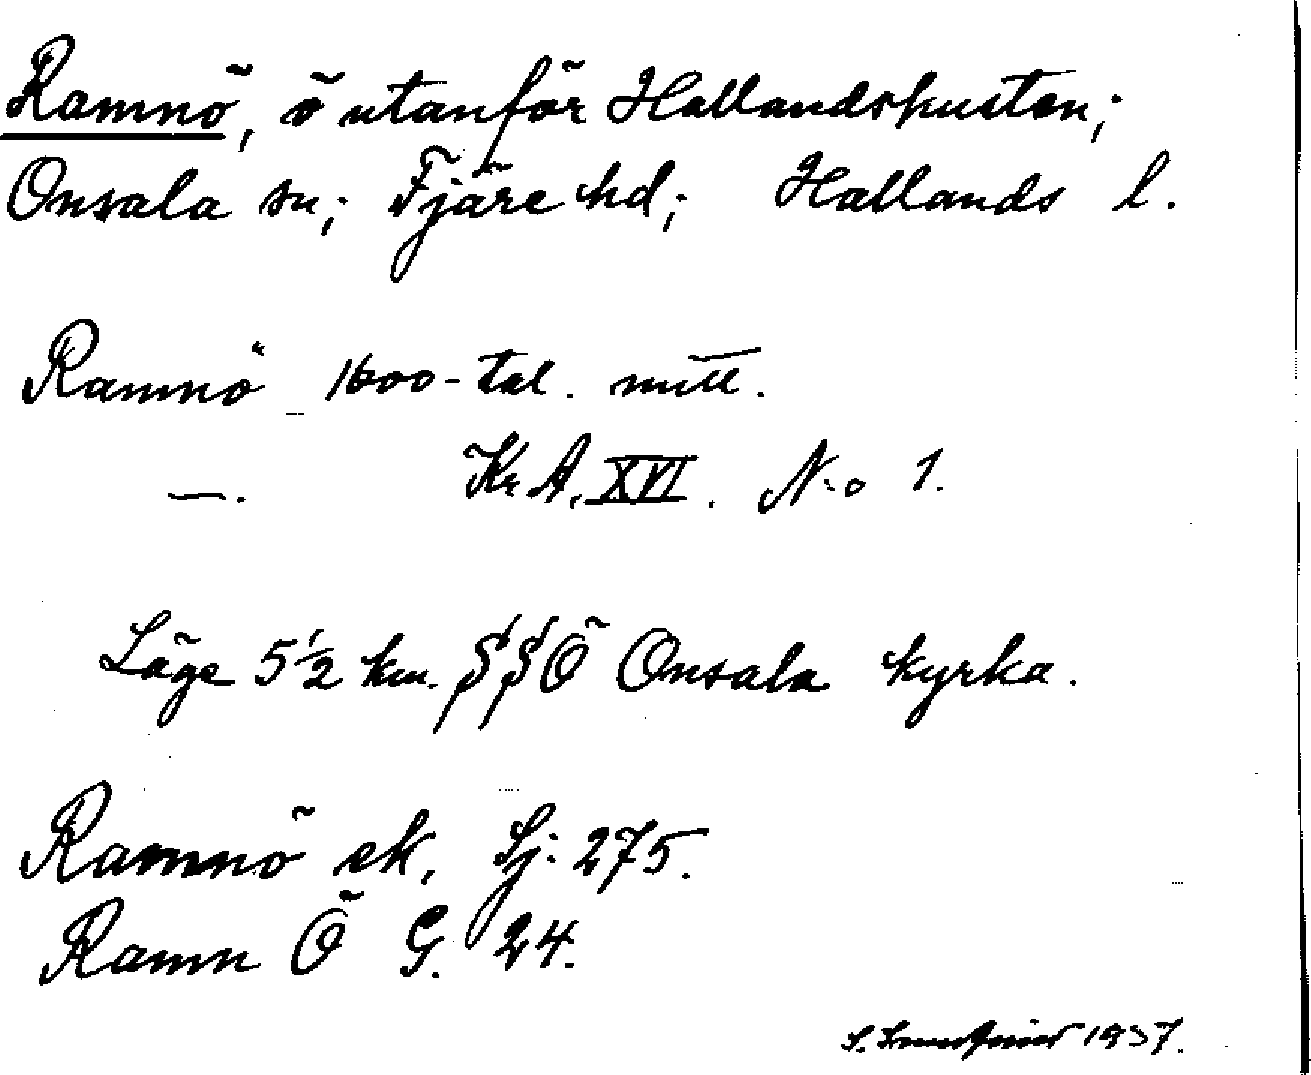 Ramnö, ö utanför Hallandskusten;
Onsala sn; Fjäre hd; Hallands l.
Ramnö 1600-tal. mitt.
—. Kr A, XVI. N:o 1.
Läge 5 1/2 km. SSÖ Onsala kyrka.
Ramnö ek, Sj. 275.
Ramn Ö G. 24.
S. 1937.